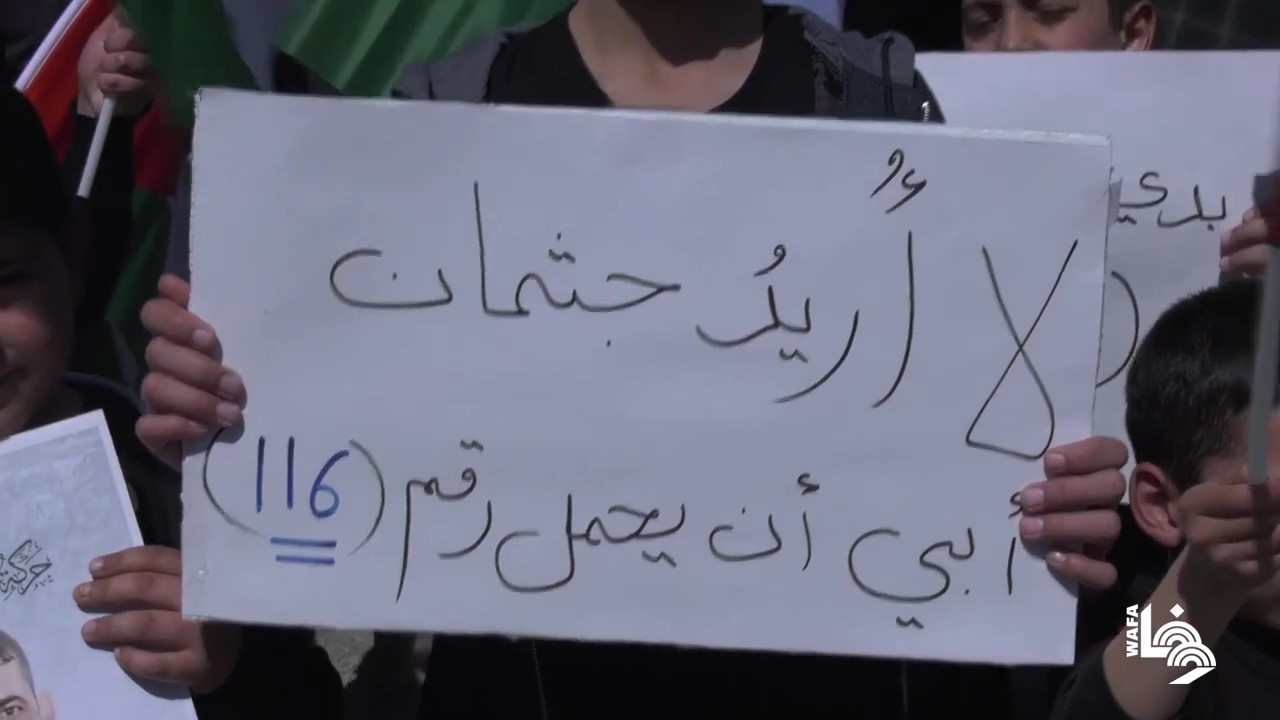 لا أُريدُ جثمان
أبي أن يحمل رقم (116)
بدي
حركة
WAFA
وفا